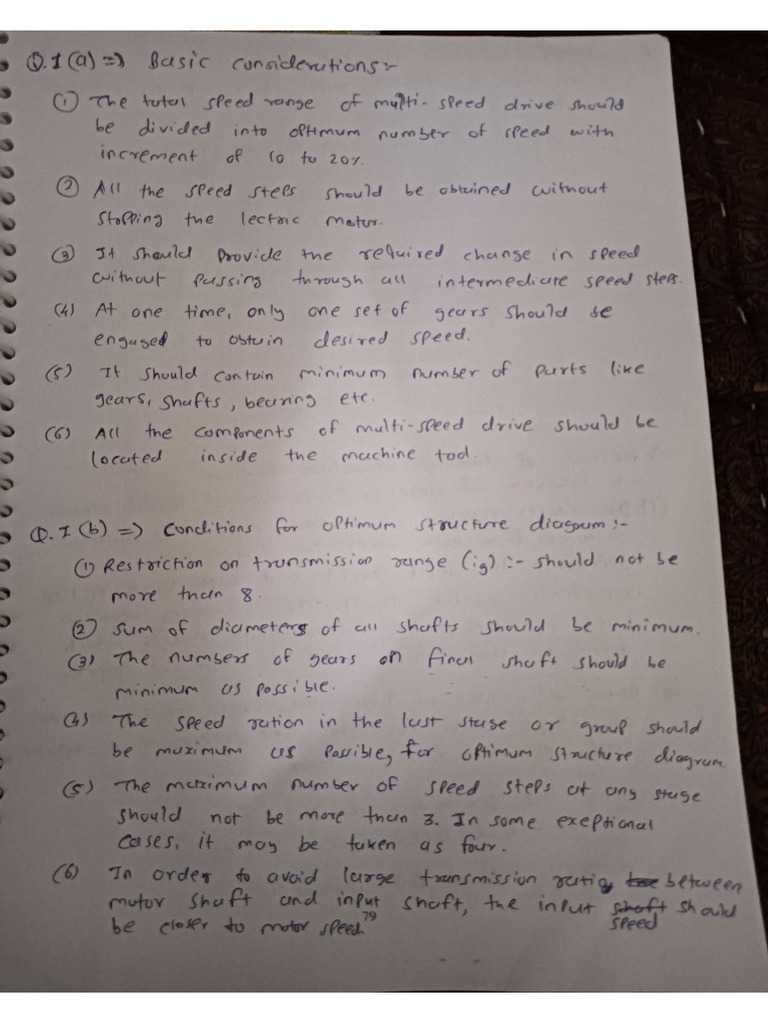 Q.1(a) => Basic Considerations:-
(1) The total speed range of multi-speed drive should
be divided into optimum number of speed with
increment of 10 to 20%.
(2) All the speed steps should be obtained without
stopping the lectric motor.
(3) It should provide the required change in speed
without passing through all intermediate speed steps.
(4) At one time, only one set of gears should be
engaged to obtain desired speed.
(5) It should contain minimum number of parts like
gears, shafts, bearing etc.
(6) All the components of multi-speed drive should be
located inside the machine tool.
Q.1(b) => Conditions for optimum structure diagram:-
(1) Restriction on transmission range (ig) :- should not be
more than 8.
(2) Sum of diameters of all shafts should be minimum.
(3) The numbers of gears on final shaft should be
minimum as possible.
(4) The speed ration in the last stage or group should
be maximum as possible, for optimum structure diagram.
(5) The maximum number of speed steps at any stage
should not be more than 3. In some exeptional
cases, it may be taken as four.
(6) In order to avoid large transmission ratio between
motor shaft and input shaft, the input shaft should
be closer to motor speed. 79 speed